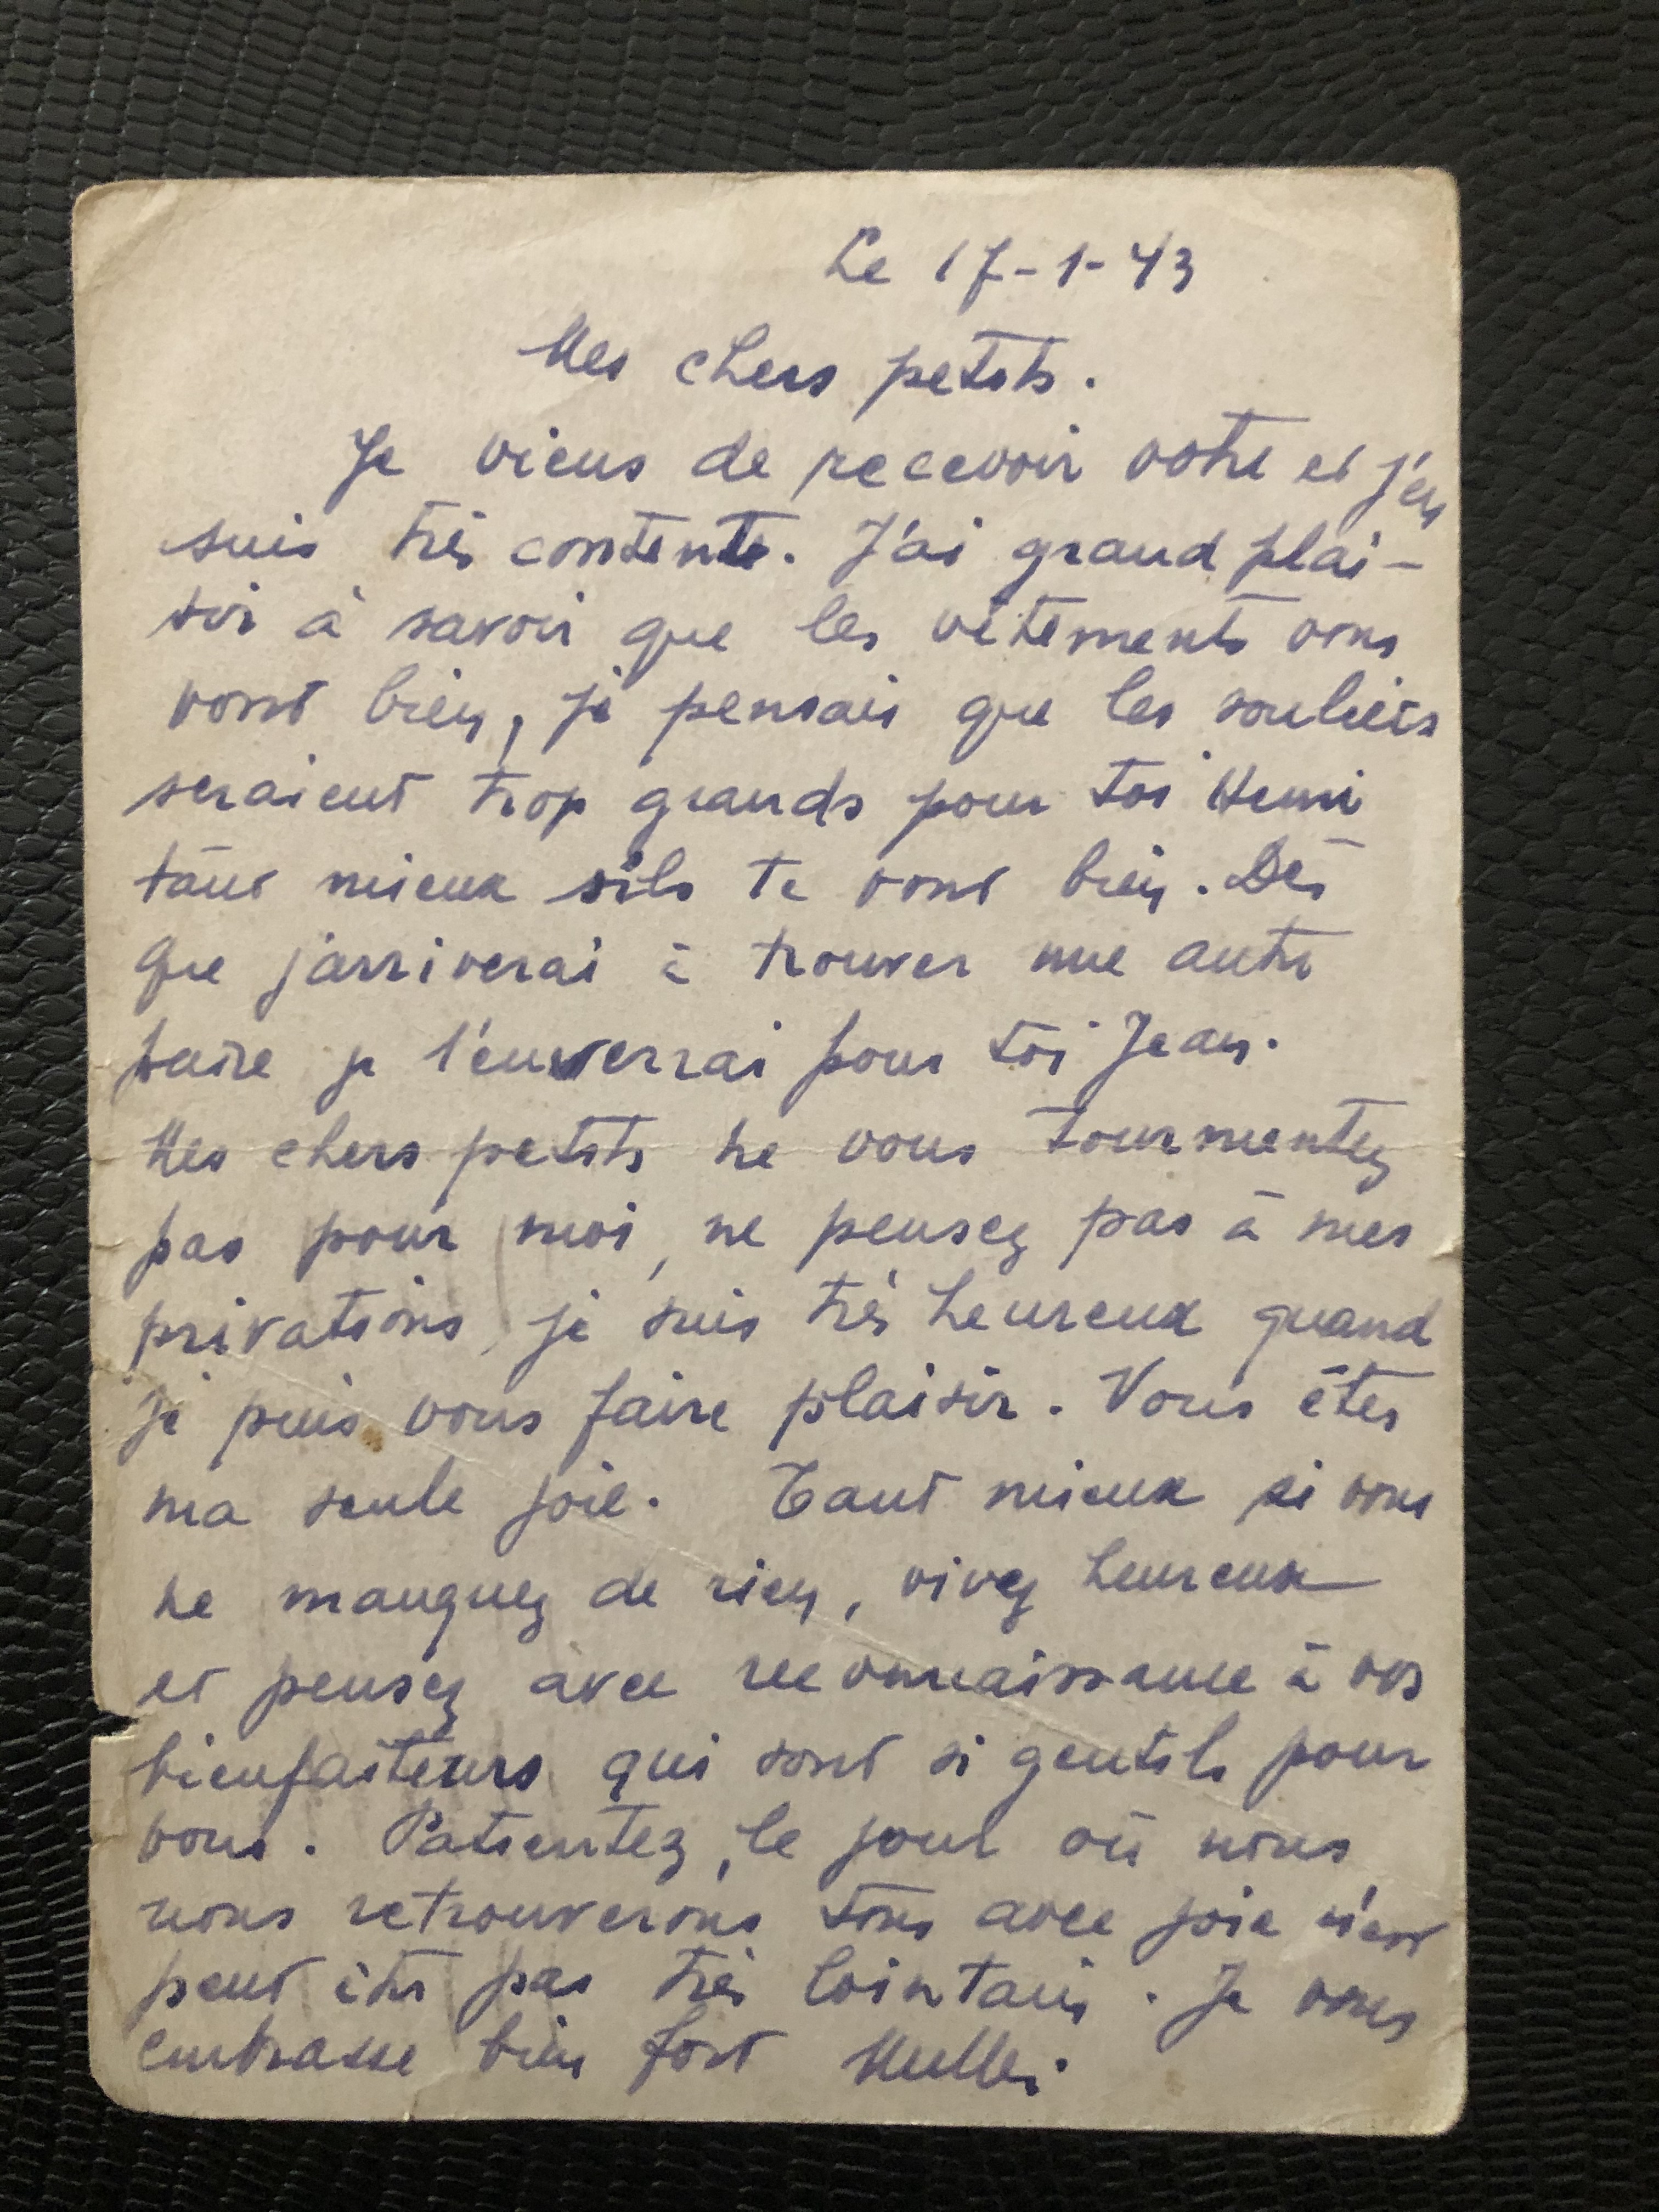 Le 17-1-43
Mes chers petits.
Je viens de recevoir votre et j'en
suis très contente. J'ai grand plai-
sir à savoir que les vêtements vous
vont bien, je pensais que les souliers
seraient trop grands pour toi Henri
tant mieux s'ils te vont bien. Dès
que j'arriverai à trouver une autre
paire je l'enverrai pour toi Jean.
Mes chers petits ne vous tourmentez
pas pour moi, ne pensez pas à mes
privations, je suis très heureux quand
je puis vous faire plaisir. Vous êtes
ma seule joie. Tant mieux si vous
ne manquez de rien, vivez heureux
et pensez avec reconnaissance à vos
bienfaiteurs qui sont si gentils pour
vous. Patientez, le jour où nous
nous retrouverons tous avec joie n'est
peut être pas très lointain. Je vous
embrasse bien fort